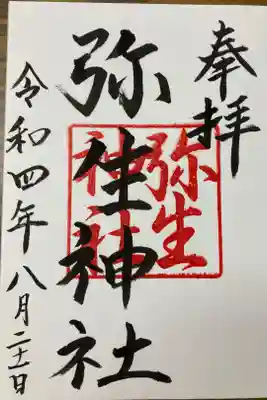 奉拝
弥生神社
弥生
神社
令和四年八月二十一日